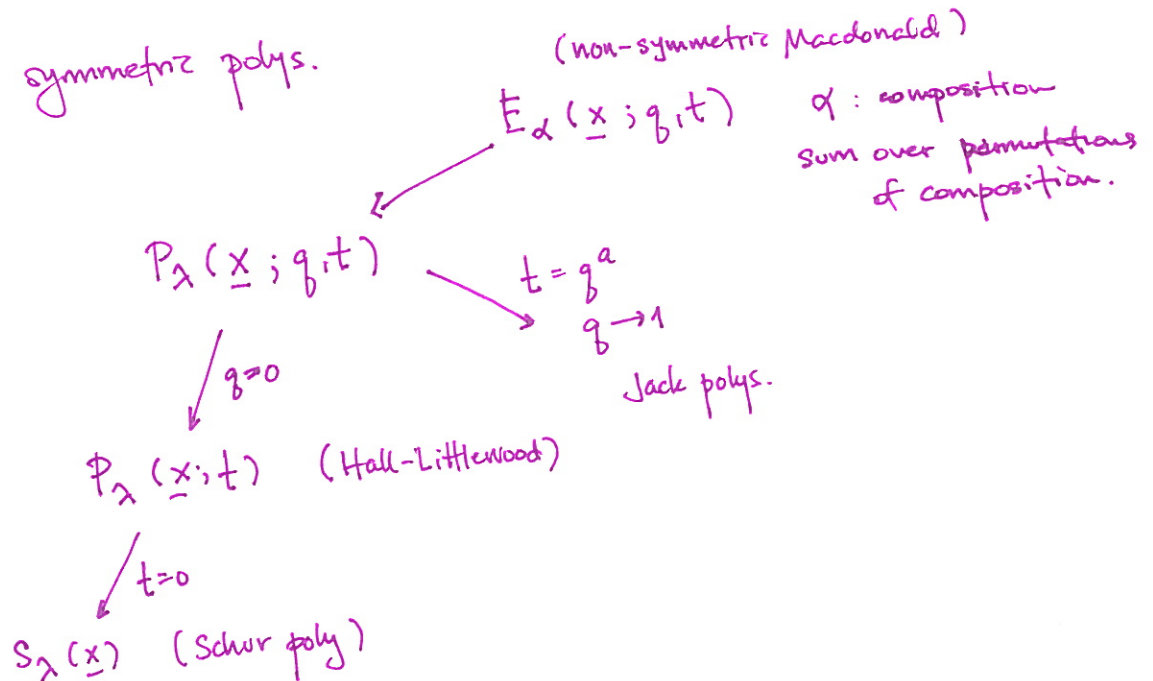 symmetric polys.
(non-symmetric Macdonald)
E_α (x ; q,t)
α : composition
sum over permutations
of composition.
P_λ (x ; q,t)
t = q^a
q → 1
Jack polys.
q=0
P_λ (x; t) (Hall-Littlewood)
t=0
S_λ (x) (Schur poly)